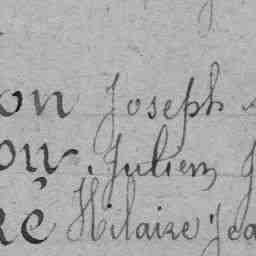 on Joseph
ou, Julien J
ré Hilaire Jea